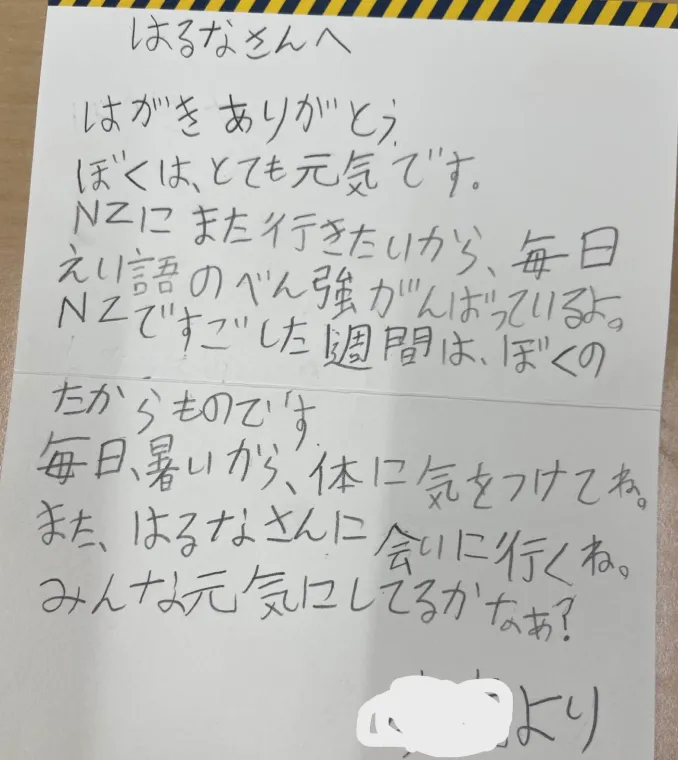 はるなさんへ
はがきありがとう。
ぼくは、とても元気です。
NZにまた行きたいから、毎日
えい語のべん強がんばっているよ。
NZですごした週間は、ぼくの
たからものです。
毎日、暑いから、体に気をつけてね。
また、はるなさんに会いに行くね。
みんな元気にしてるかなぁ?
より